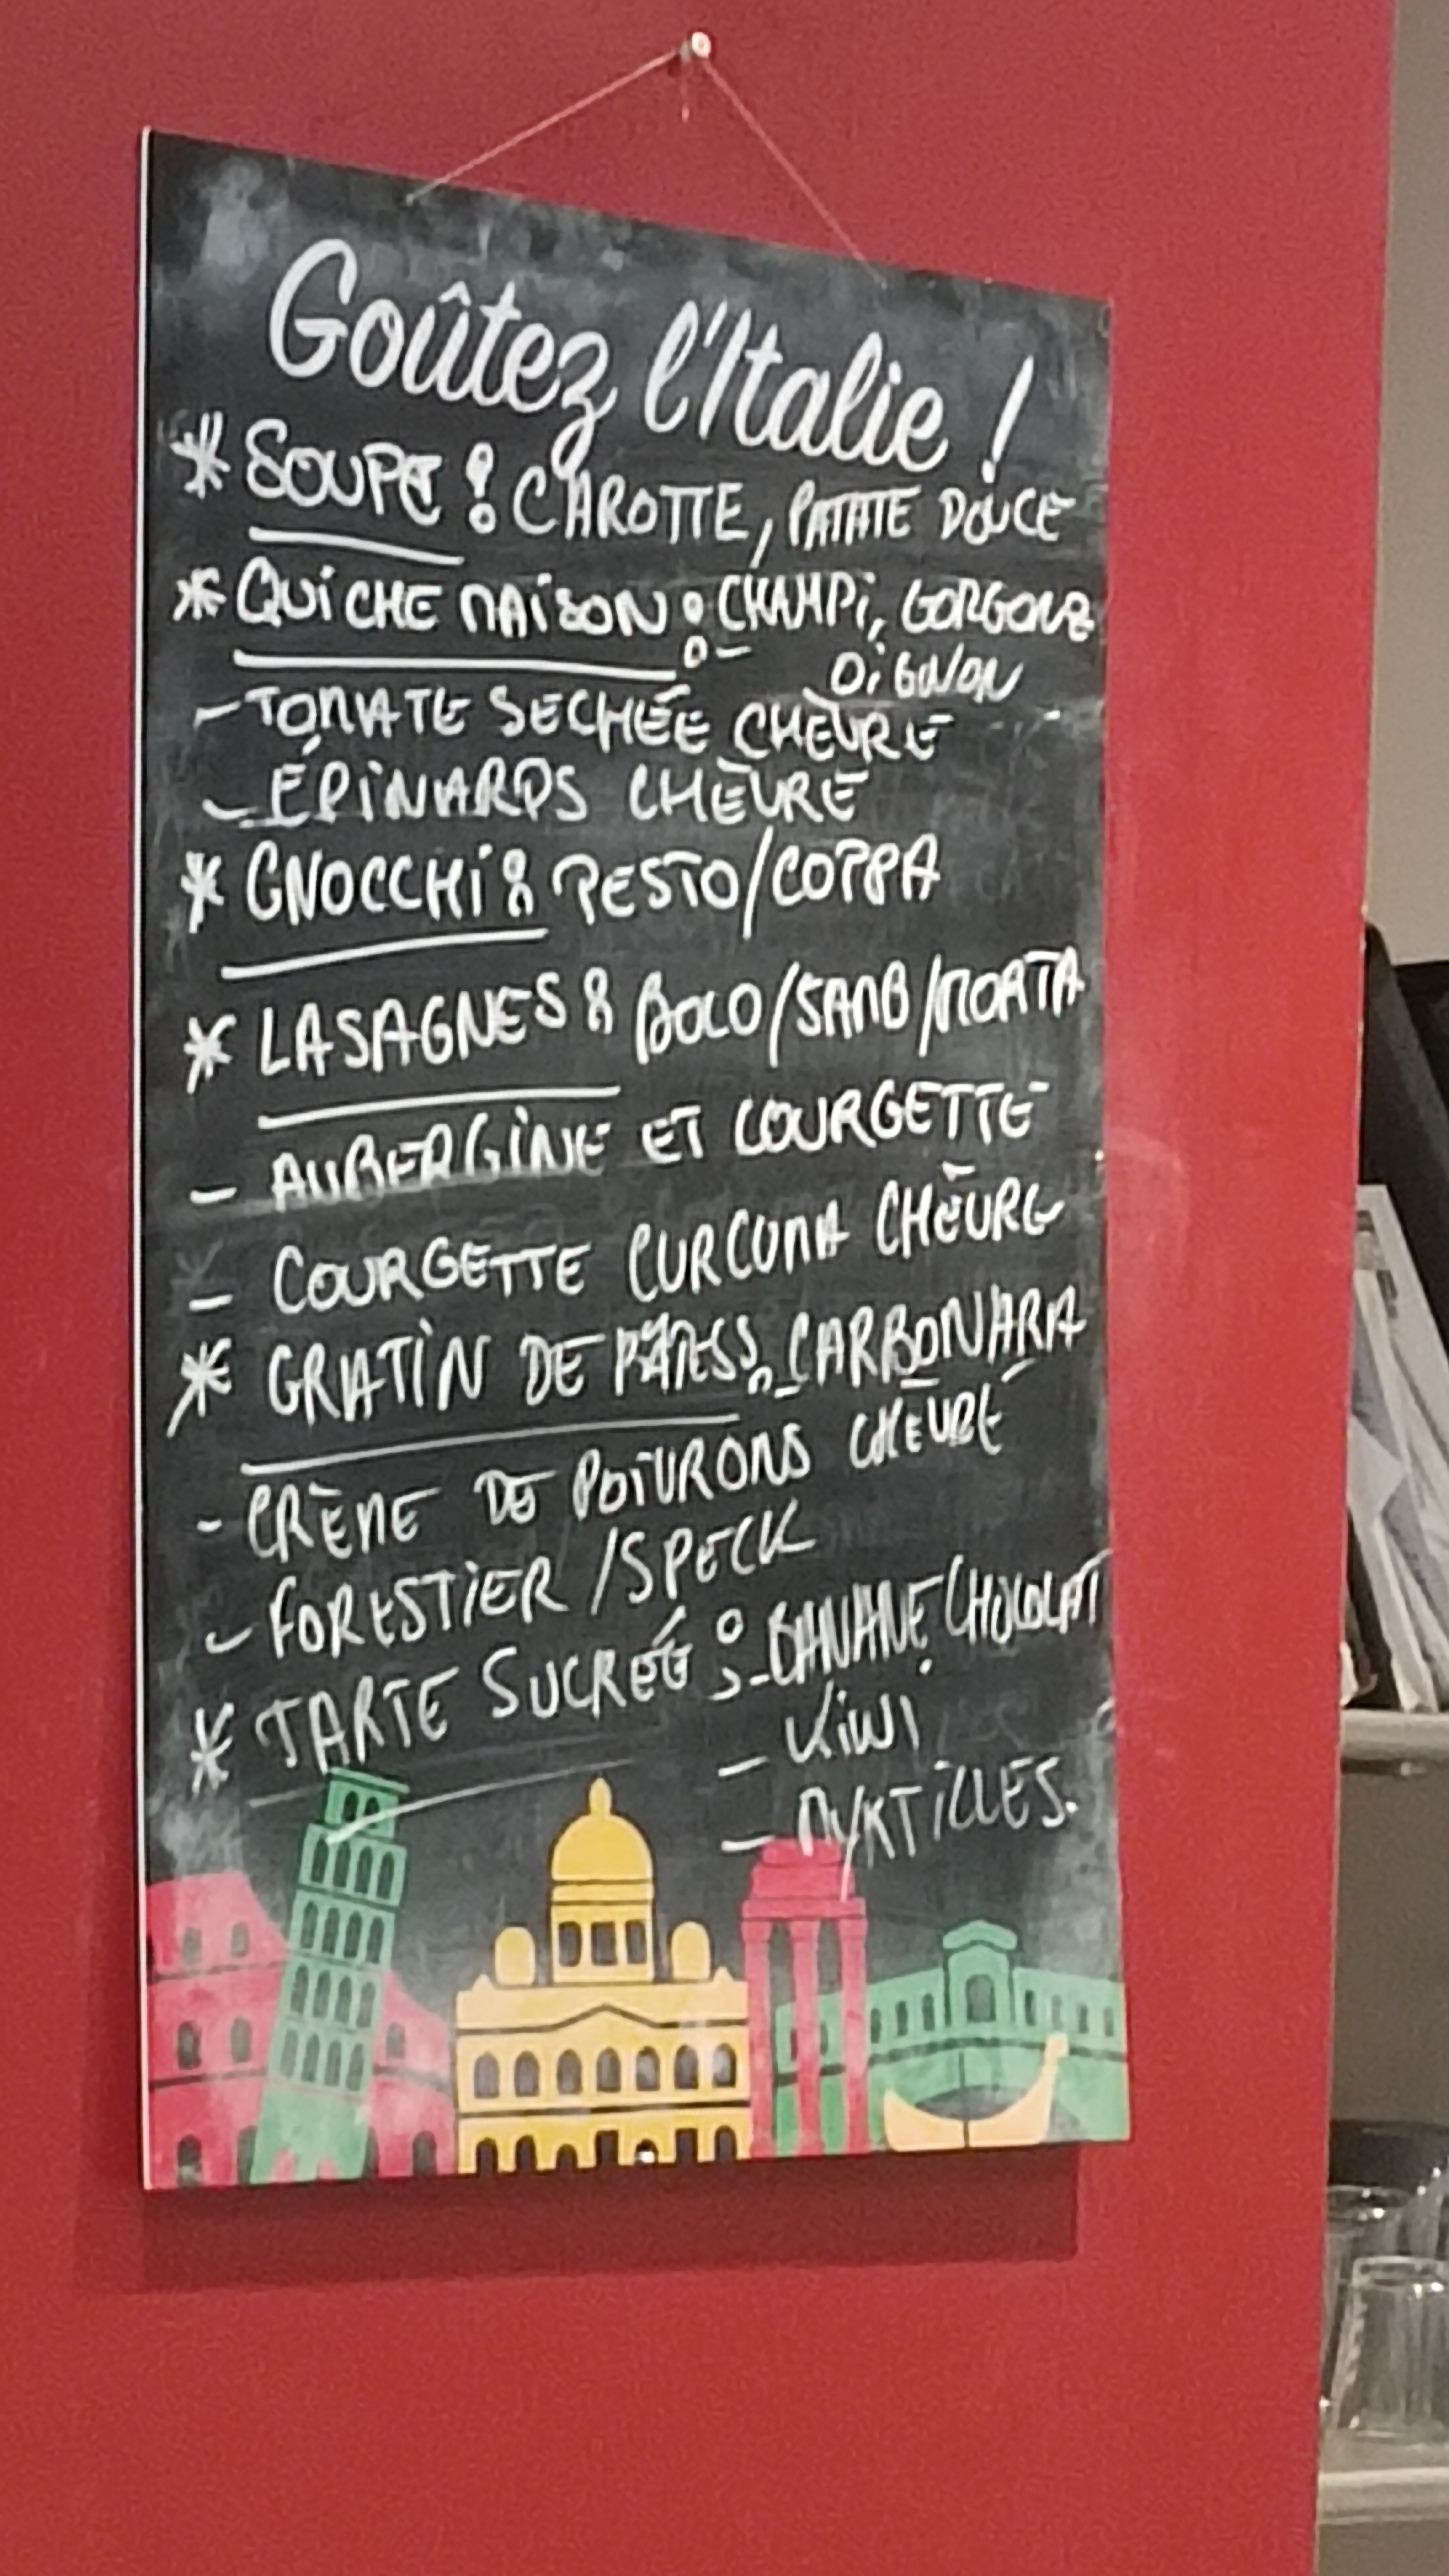 Goûtez l'Italie !
* SOUPE : CAROTTE, PATATE DOUCE
* QUICHE MAISON : - CHAMPI, GORGONZ
OIGNON
- TOMATE SECHÉE CHÈVRE
- ÉPINARDS CHÈVRE
* GNOCCHI : PESTO/COPPA
* LASAGNES : BOLO/JAMB/MORTA
- AUBERGINE ET COURGETTE
- COURGETTE CURCUMA CHÈVRE
* GRATIN DE PÂTES : - CARBONARA
- CRÈME DE POIVRONS CHÈVRE
- FORESTIER /SPECK
* TARTE SUCRÉE : - BANANE CHOCOLAT
- KIWI
- MYRTILLES.